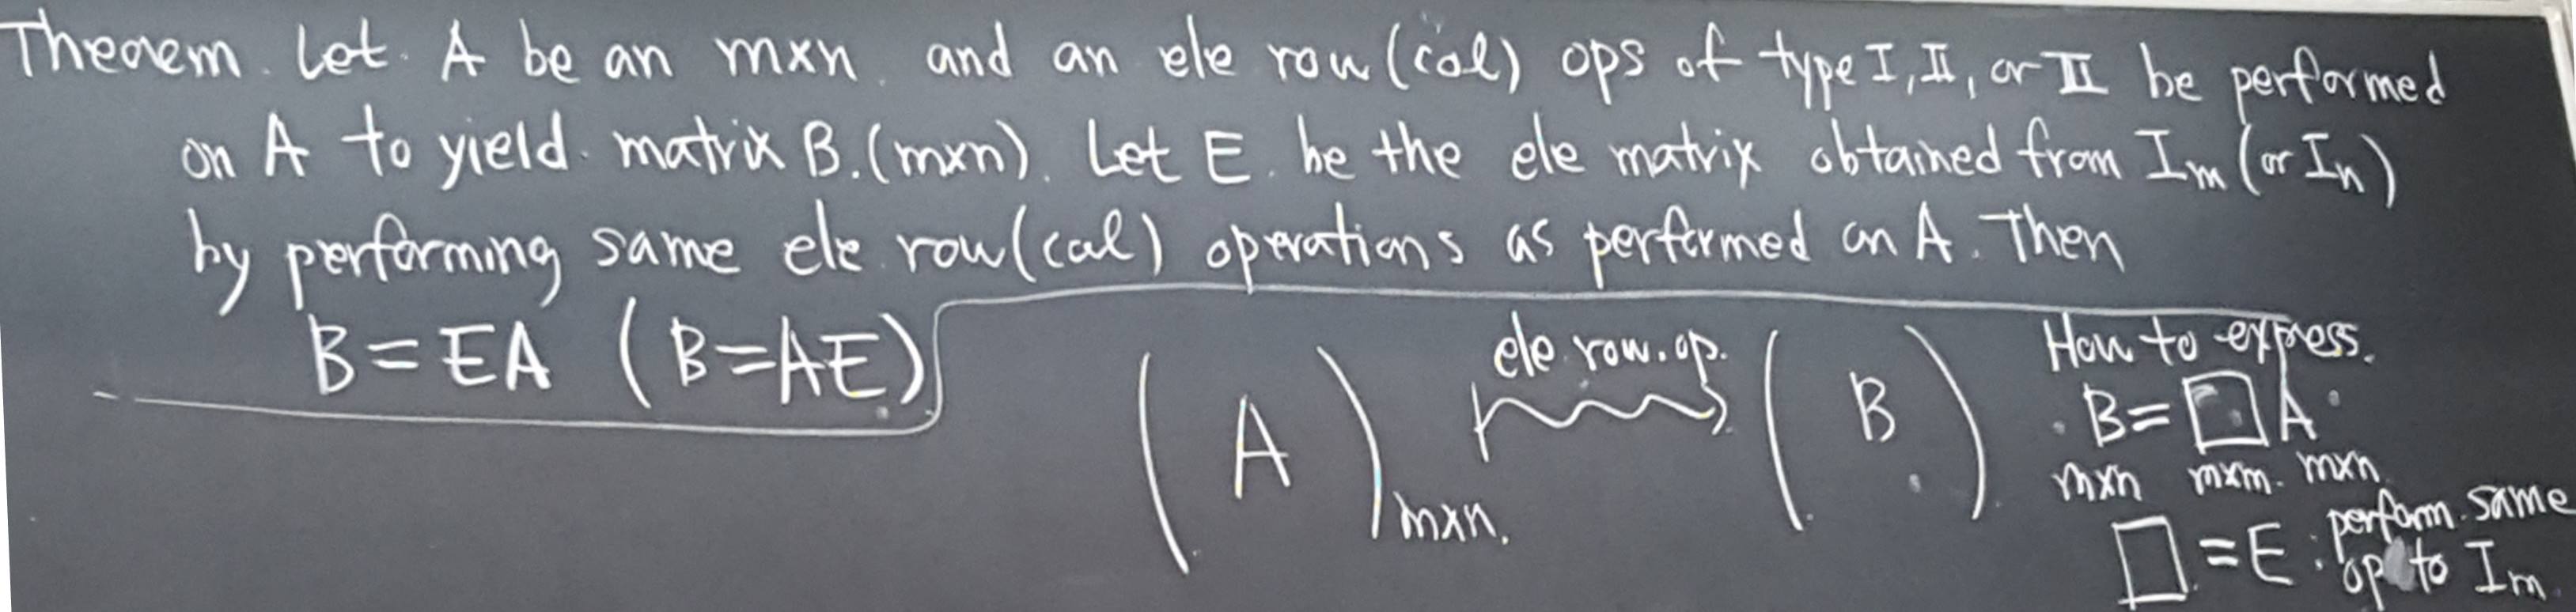 Theorem. Let A be an m×n and an ele row (col) ops of type I, II, or III be performed
on A to yield matrix B. (m×n). Let E be the ele matrix obtained from Im (or In)
by performing same ele row (col) operations as performed on A. Then
B = EA ( B = AE )
( A ) m×n.
ele. row. op.
( B )
How to express.
B = □ A
m×n m×m. m×n
□ = E : perform same
op to Im